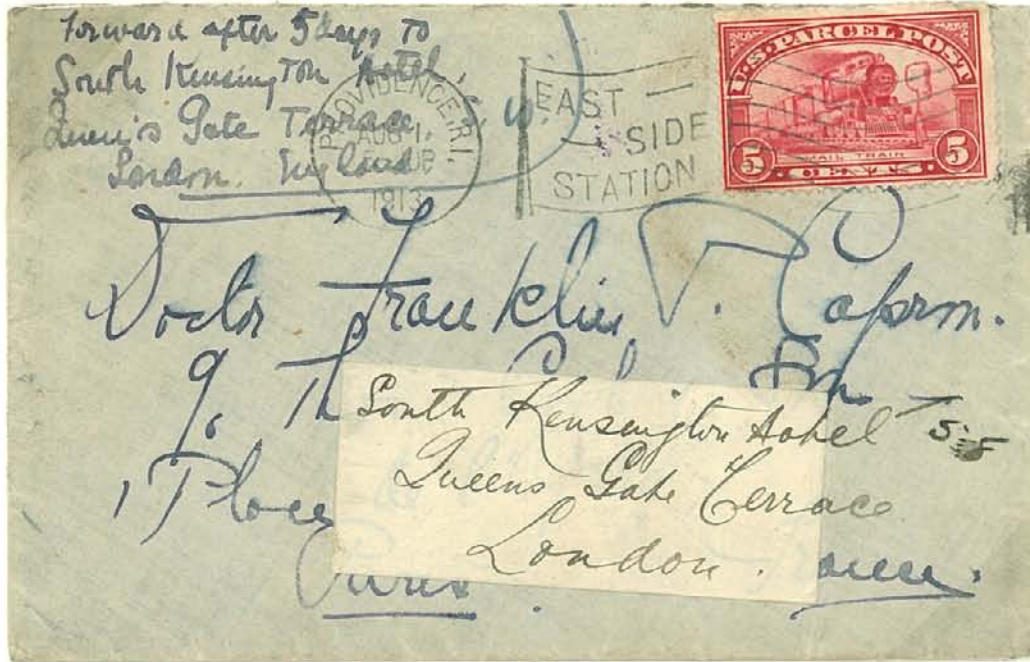 Forward after 5 days to
South Kensington Hotel,
Queen's Gate Terrace,
London. England
S.W.
PROVIDENCE, R.I.
AUG 1
1913
EAST
SIDE
STATION
U.S. PARCEL POST
MAIL TRAIN
5 CENTS 5
Doctor Franklin P. Capron.
Th
South Kensington Hotel
Queens Gate Terrace
London.
1 Place
Paris.